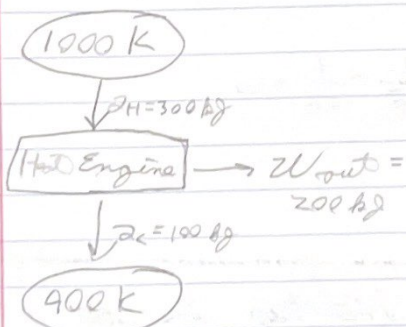 1000 K
QH=300 kJ
Heat Engine
Wout =
200 kJ
Qc=100 kJ
400 K